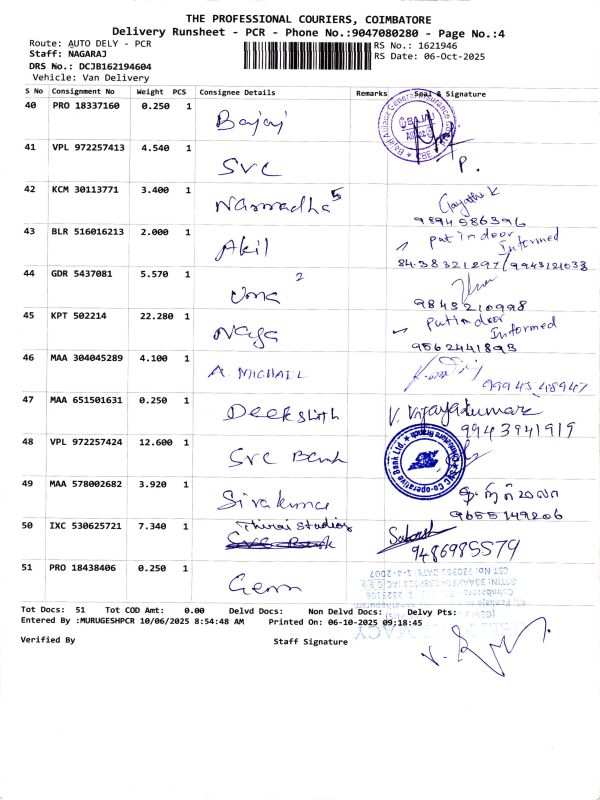 THE PROFESSIONAL COURIERS, COIMBATORE
Delivery Runsheet - PCR - Phone No.:9047080280 - Page No.:4
Route: AUTO DELY - PCR RS No.: 1621946
Staff: NAGARAJ RS Date: 06-Oct-2025
DRS No.: DCJB162194604
Vehicle: Van Delivery
S No Consignment No Weight PCS Consignee Details Remarks Seal & Signature
40 PRO 18337160 0.250 1 Bajaj
41 VPL 972257413 4.540 1 SVC P.
42 KCM 30113771 3.400 1 Narmadha 5 Gayathri K
9894586396
43 BLR 516016213 2.000 1 Akil Put in door Informed
84.38321297/9943121033
44 GDR 5437081 5.570 1 Uma 2
9843210998
45 KPT 502214 22.280 1 Naga Put in door Informed
9562441893
46 MAA 304045289 4.100 1 A. MICHAIL
9994548947
47 MAA 651501631 0.250 1 Deekshith V. Vijayakumar
9943941919
48 VPL 972257424 12.600 1 SVC Bank
SVC Co-operative Bank Ltd.
49 MAA 578002682 3.920 1 Sivakumar
9655149206
50 IXC 530625721 7.340 1 Thirai Studios
SVC Bank
9486985579
51 PRO 18438406 0.250 1 Gem
Tot Docs: 51 Tot COD Amt: 0.00 Delvd Docs: Non Delvd Docs: Delvy Pts:
Entered By :MURUGESHPCR 10/06/2025 8:54:48 AM Printed On: 06-10-2025 09:18:45
Verified By Staff Signature